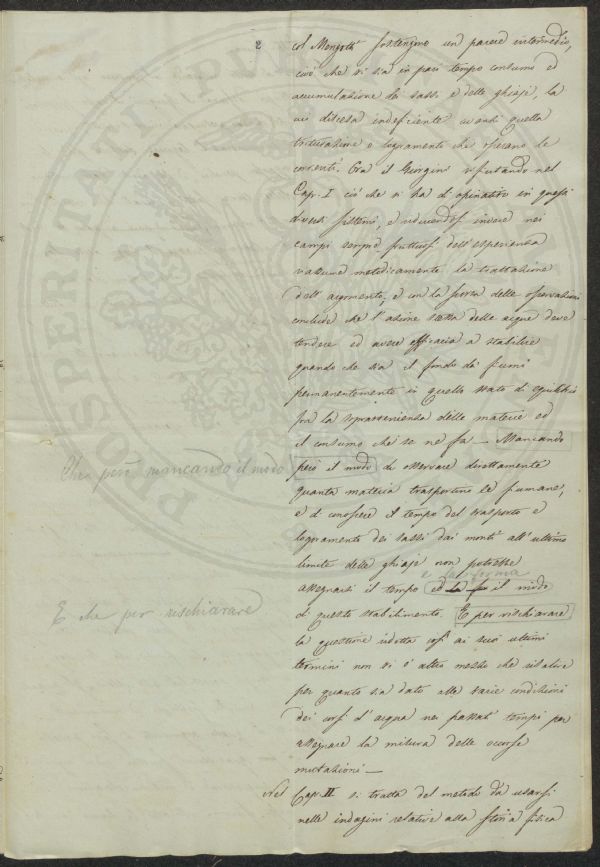 2
col Mengotti sostengono un parere intermedio,
cioè che vi sia in pari tempo consumo ed
accumulazione dei sassi e delle ghiaje, la
cui discesa indeficiente avanti quella
triturazione e logoramento che operano le
correnti. Ora il Giorgini rifiutando nel
Cap. I ciò che vi ha di opinativo in questi
diversi sistemi, e riducendosi invece nei
campi sempre fruttuosi dell'esperienza
riassume metodicamente la trattazione
dell'argomento, e con la scorta delle osservazioni
conclude che l'azione stessa delle acque deve
tendere ed avere efficacia a stabilire
quando che sia il fondo dei fiumi
permanentemente in quello stato di equilibrio
fra la sopravvenienza delle materie ed
il consumo che se ne fa — Mancando
Che però mancando il modo
però il modo di osservare direttamente
quanta materia trasportino le fiumane,
e di conoscere il tempo del trasporto e
logoramento dei sassi dai monti all'ultimo
limite delle ghiaje non potrebbe
e la forma
assegnarsi il tempo ed il modo
di questo stabilimento. E per rischiarare
E che per rischiarare
la questione ridotta così ai suoi ultimi
termini non vi è altro mezzo che risalire
per quanto sia dato alle varie condizioni
dei corsi d'acqua nei passati tempi per
assegnare la misura delle occorse
mutazioni —
Nel Cap. II si tratta del metodo da usarsi
nelle indagini relative alla storia fisica